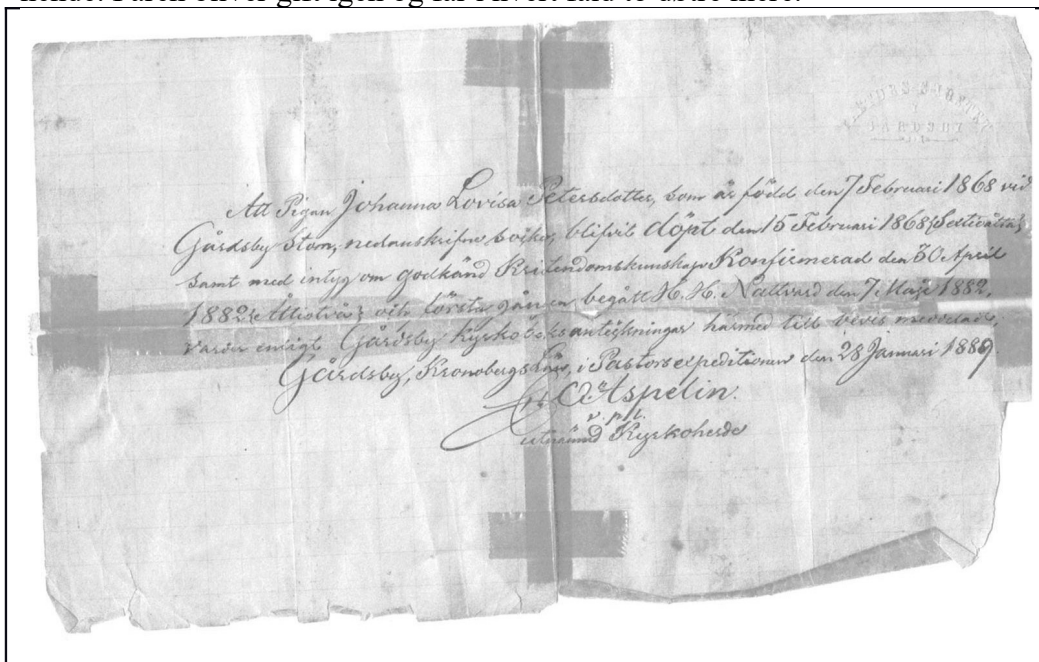 hende. Faren bliver gift igen og får i hvert fald to døtre mere.
Att Pigan Johanna Lovisa Petersdotter, som är född den 7 Februari 1868 vid
Gårdsby Stom, nedanskrifne socken, blifvit döpt den 15 Februari 1868 (Sextioåtta),
samt med intyg om godkänd Kristendomskunskap Konfirmerad den 30 April
1882 (Åttiotvå) och första gången begått H. H. Nattvard den 7 Maji 1882,
varder enligt Gårdsby Kyrkoboksanteckningar härmed till bevis meddeladt,
Gårdsby, Kronobergs Län, i Pastorsexpeditionen den 28 Januari 1889.
Aspelin.
v. p. l.
utnämnd Kyrkoherde